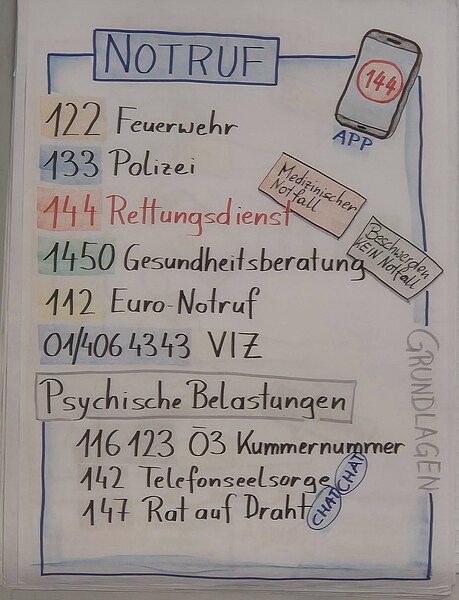 NOTRUF
144
APP
122 Feuerwehr
133 Polizei
144 Rettungsdienst
Medizinischer
Notfall
1450 Gesundheitsberatung
Beschwerden
KEIN Notfall
112 Euro-Notruf
01/406 43 43 VIZ
GRUNDLAGEN
Psychische Belastungen
116 123 Ö3 Kummernummer
142 Telefonseelsorge CHAT
147 Rat auf Draht CHAT